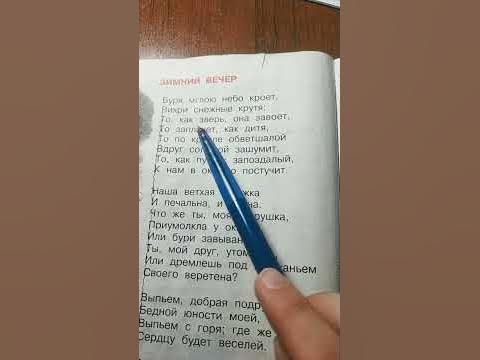 ЗИМНИЙ ВЕЧЕР
Буря мглою небо кроет,
Вихри снежные крутя;
То, как зверь, она завоет,
То заплачет, как дитя,
То по обветшалой
Вдруг зашумит,
То, как запоздалый,
К нам в постучит.
Наша ветхая
И печальна, и
Что же ты, моя
Приумолкла у
Или бури
Ты, мой друг,
Или дремлешь под
Своего веретена?
Выпьем, добрая
Бедной юности моей,
Выпьем с горя; где же
Сердцу будет веселей.